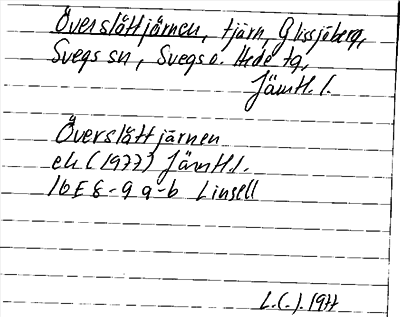 Överslåttjärnen, tjärn, Glissjöberg,
Svegs sn, Svegs o. Hede tg,
Jämtl. l.
Överslåttjärnen
ek (1977) Jämtl.l.
16E 8-9 a-b Linsell
L.(.). 1977